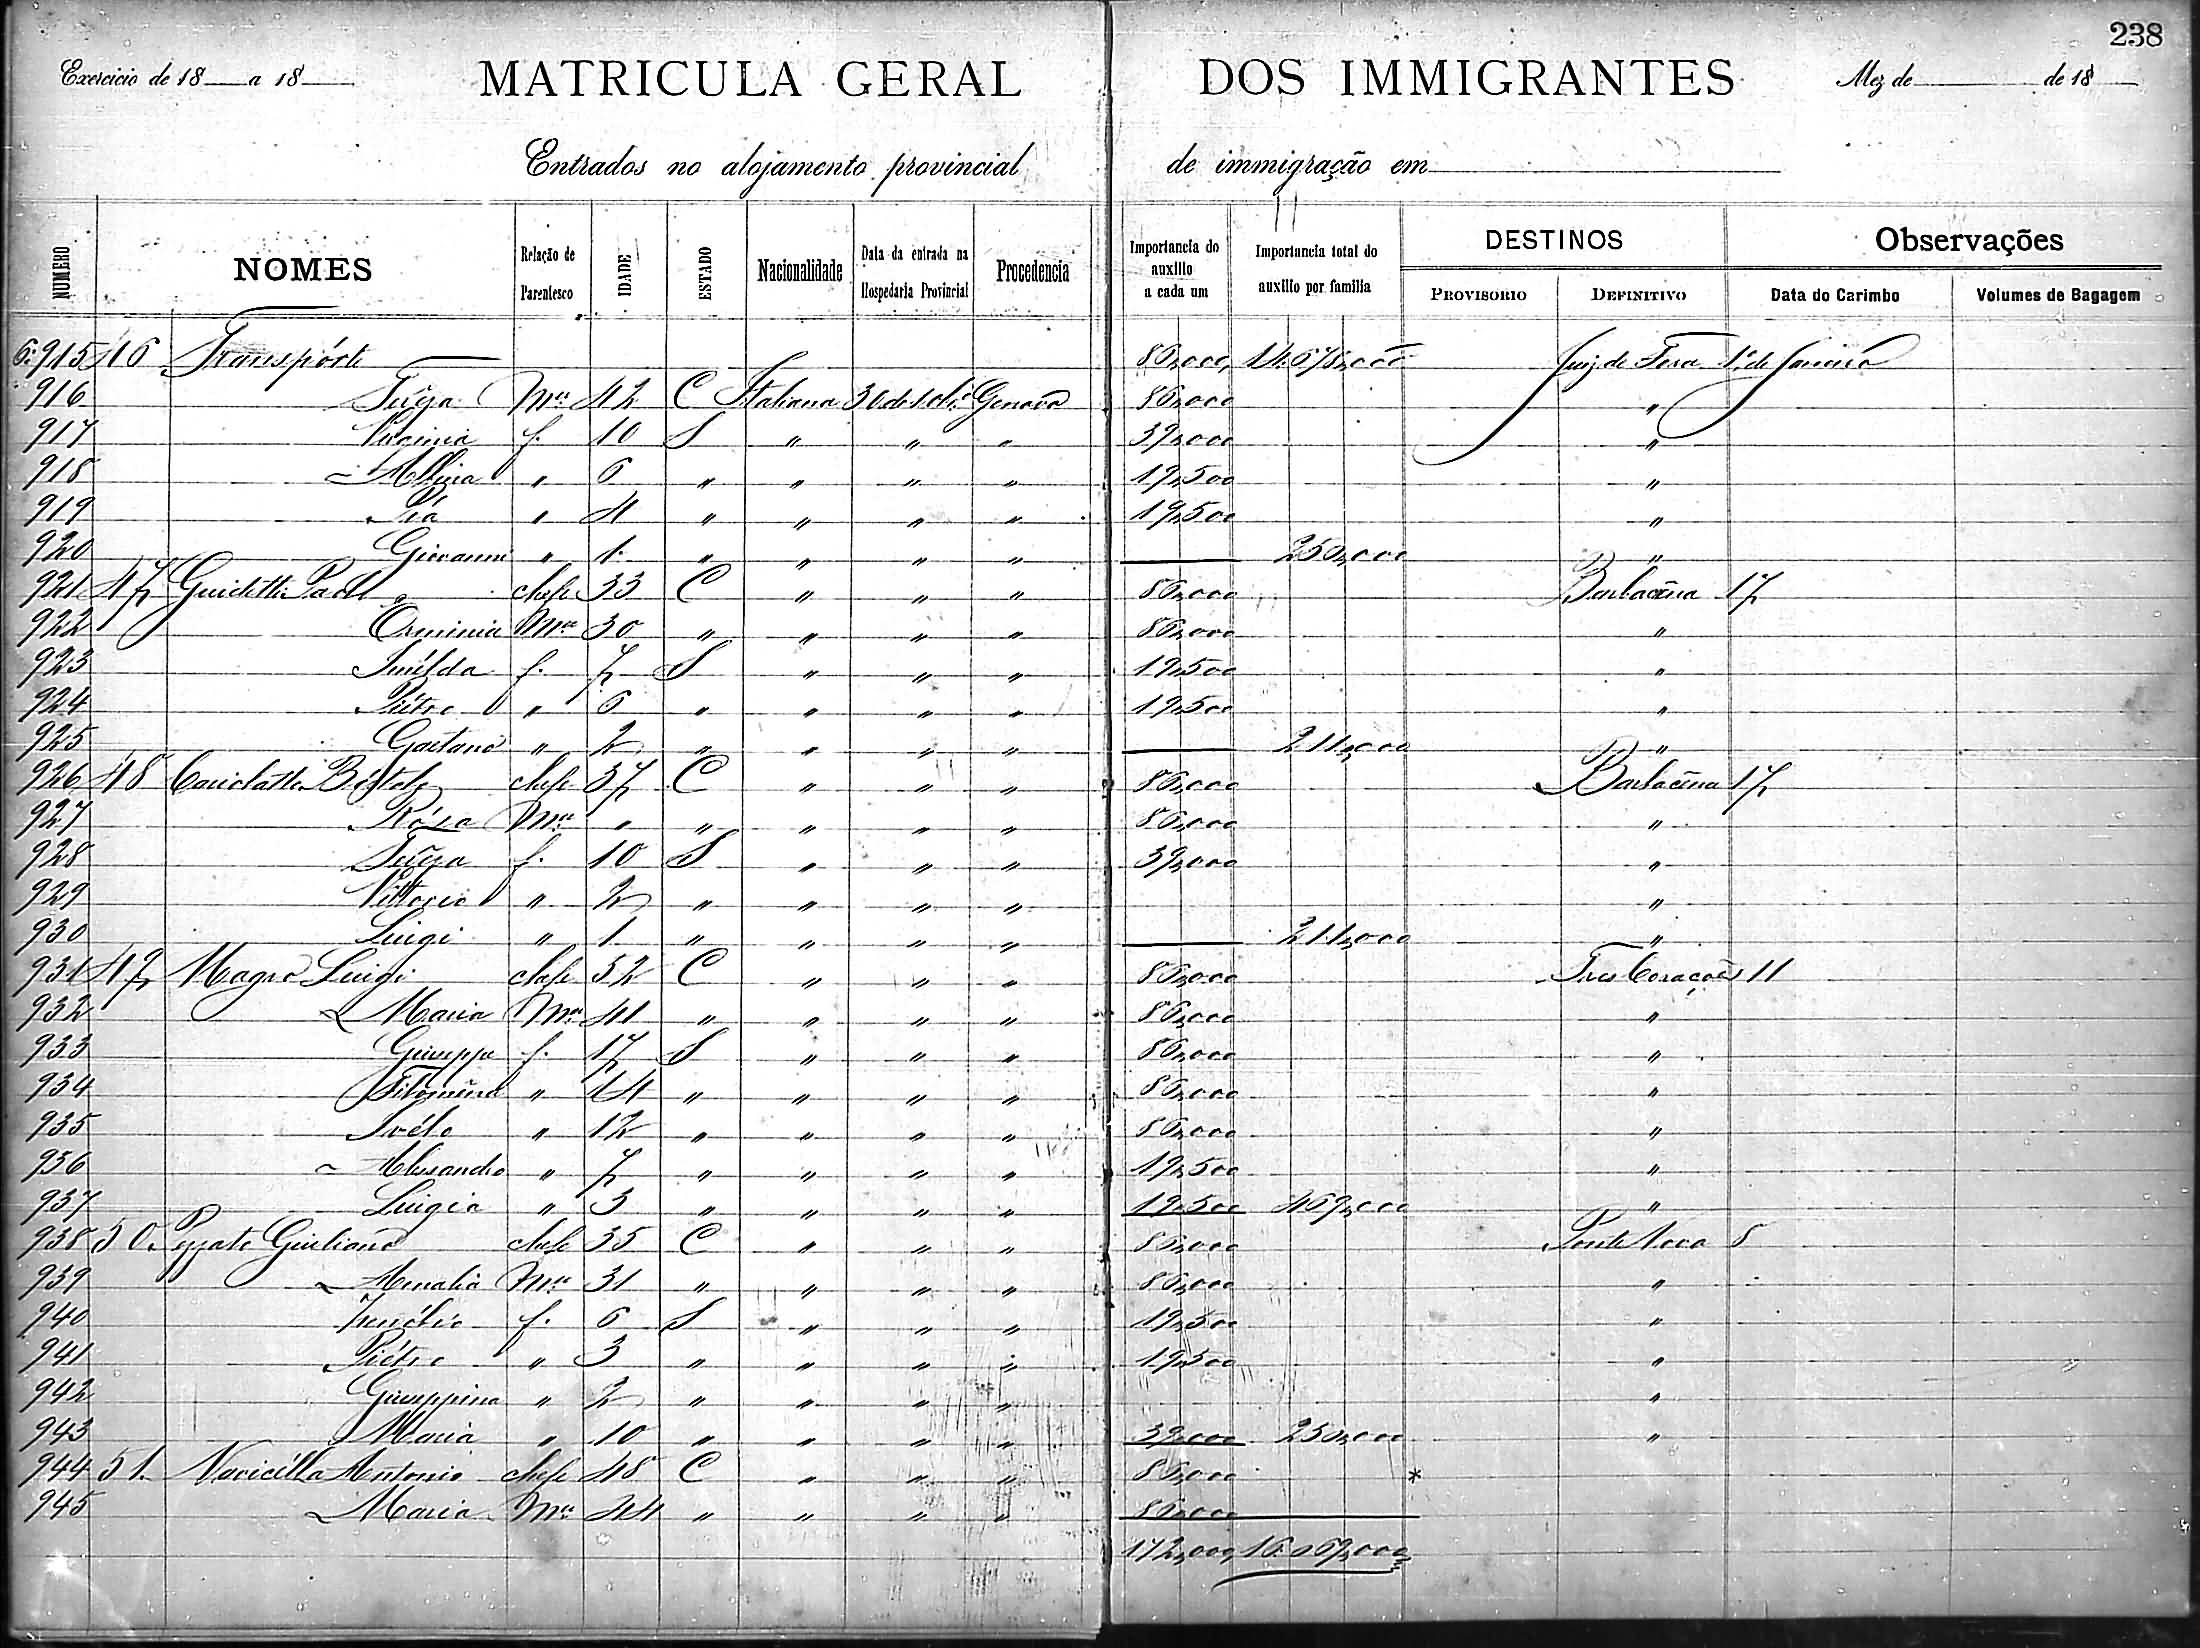 238
Exercicio de 18 a 18 MATRICULA GERAL DOS IMMIGRANTES Mez de de 18
Entrados no alojamento provincial de immigração em
NUMERO NOMES Relação de Parentesco IDADE ESTADO Nacionalidade Data da entrada na Hospedaria Provincial Procedencia Importancia do auxilio a cada um Importancia total do auxilio por familia DESTINOS PROVISORIO DEFINITIVO Observações Data do Carimbo Volumes de Bagagem
6:915 46 Transpórte 86,000 Juiz de Fora 1º de Janeiro
916 Mer 42 C Italiana 30 de Genova 86,000 "
917 Virginia f. 10 S " " " 39,000 "
918 " 6 " " " " 19,500 "
919 Pia " 4 " " " " 19,500 "
920 Giovanni " 1 " " " " 250,000 "
921 47 Guidetti chefe 33 C " " " 86,000 Barbacena 17
922 Erminia Mer 30 " " " " 86,000 "
923 Imélda f. 7 S " " " 19,500 "
924 Piétro " 6 " " " " 19,500 "
925 Gaetano " 2 " " " " 211,000 "
926 48 chefe 37 C " " " 86,000 Barbacena 17
927 Rósa Mer " " " " " 86,000 "
928 f. 10 S " " " 39,000 "
929 Vittorio " 2 " " " " "
930 Luigi " 1 " " " " 211,000 "
931 49 Magro Luigi chefe 52 C " " " 86,000 Tres Corações 11
932 Maria Mer 41 " " " " 86,000 "
933 Giuseppe f. 17 S " " " 86,000 "
934 Filoména " 14 " " " " 86,000 "
935 " 12 " " " " 86,000 "
936 Alessandro " 7 " " " " 19,500 "
937 Luigia " 3 " " " " 19,500 469,000 "
938 50 Pezzato Giuliano chefe 35 C " " " 86,000 Ponte Nova 8
939 Mer 31 " " " " 86,000 "
940 f. 6 S " " " 19,500 "
941 Piétro " 3 " " " " 19,500 "
942 Giuseppina " 2 " " " " "
943 Maria " 10 " " " " 39,000 250,000 "
944 51 Antonio chefe 48 C " " " 86,000 *
945 Maria Mer 44 " " " " 86,000
172,000 16:069,000